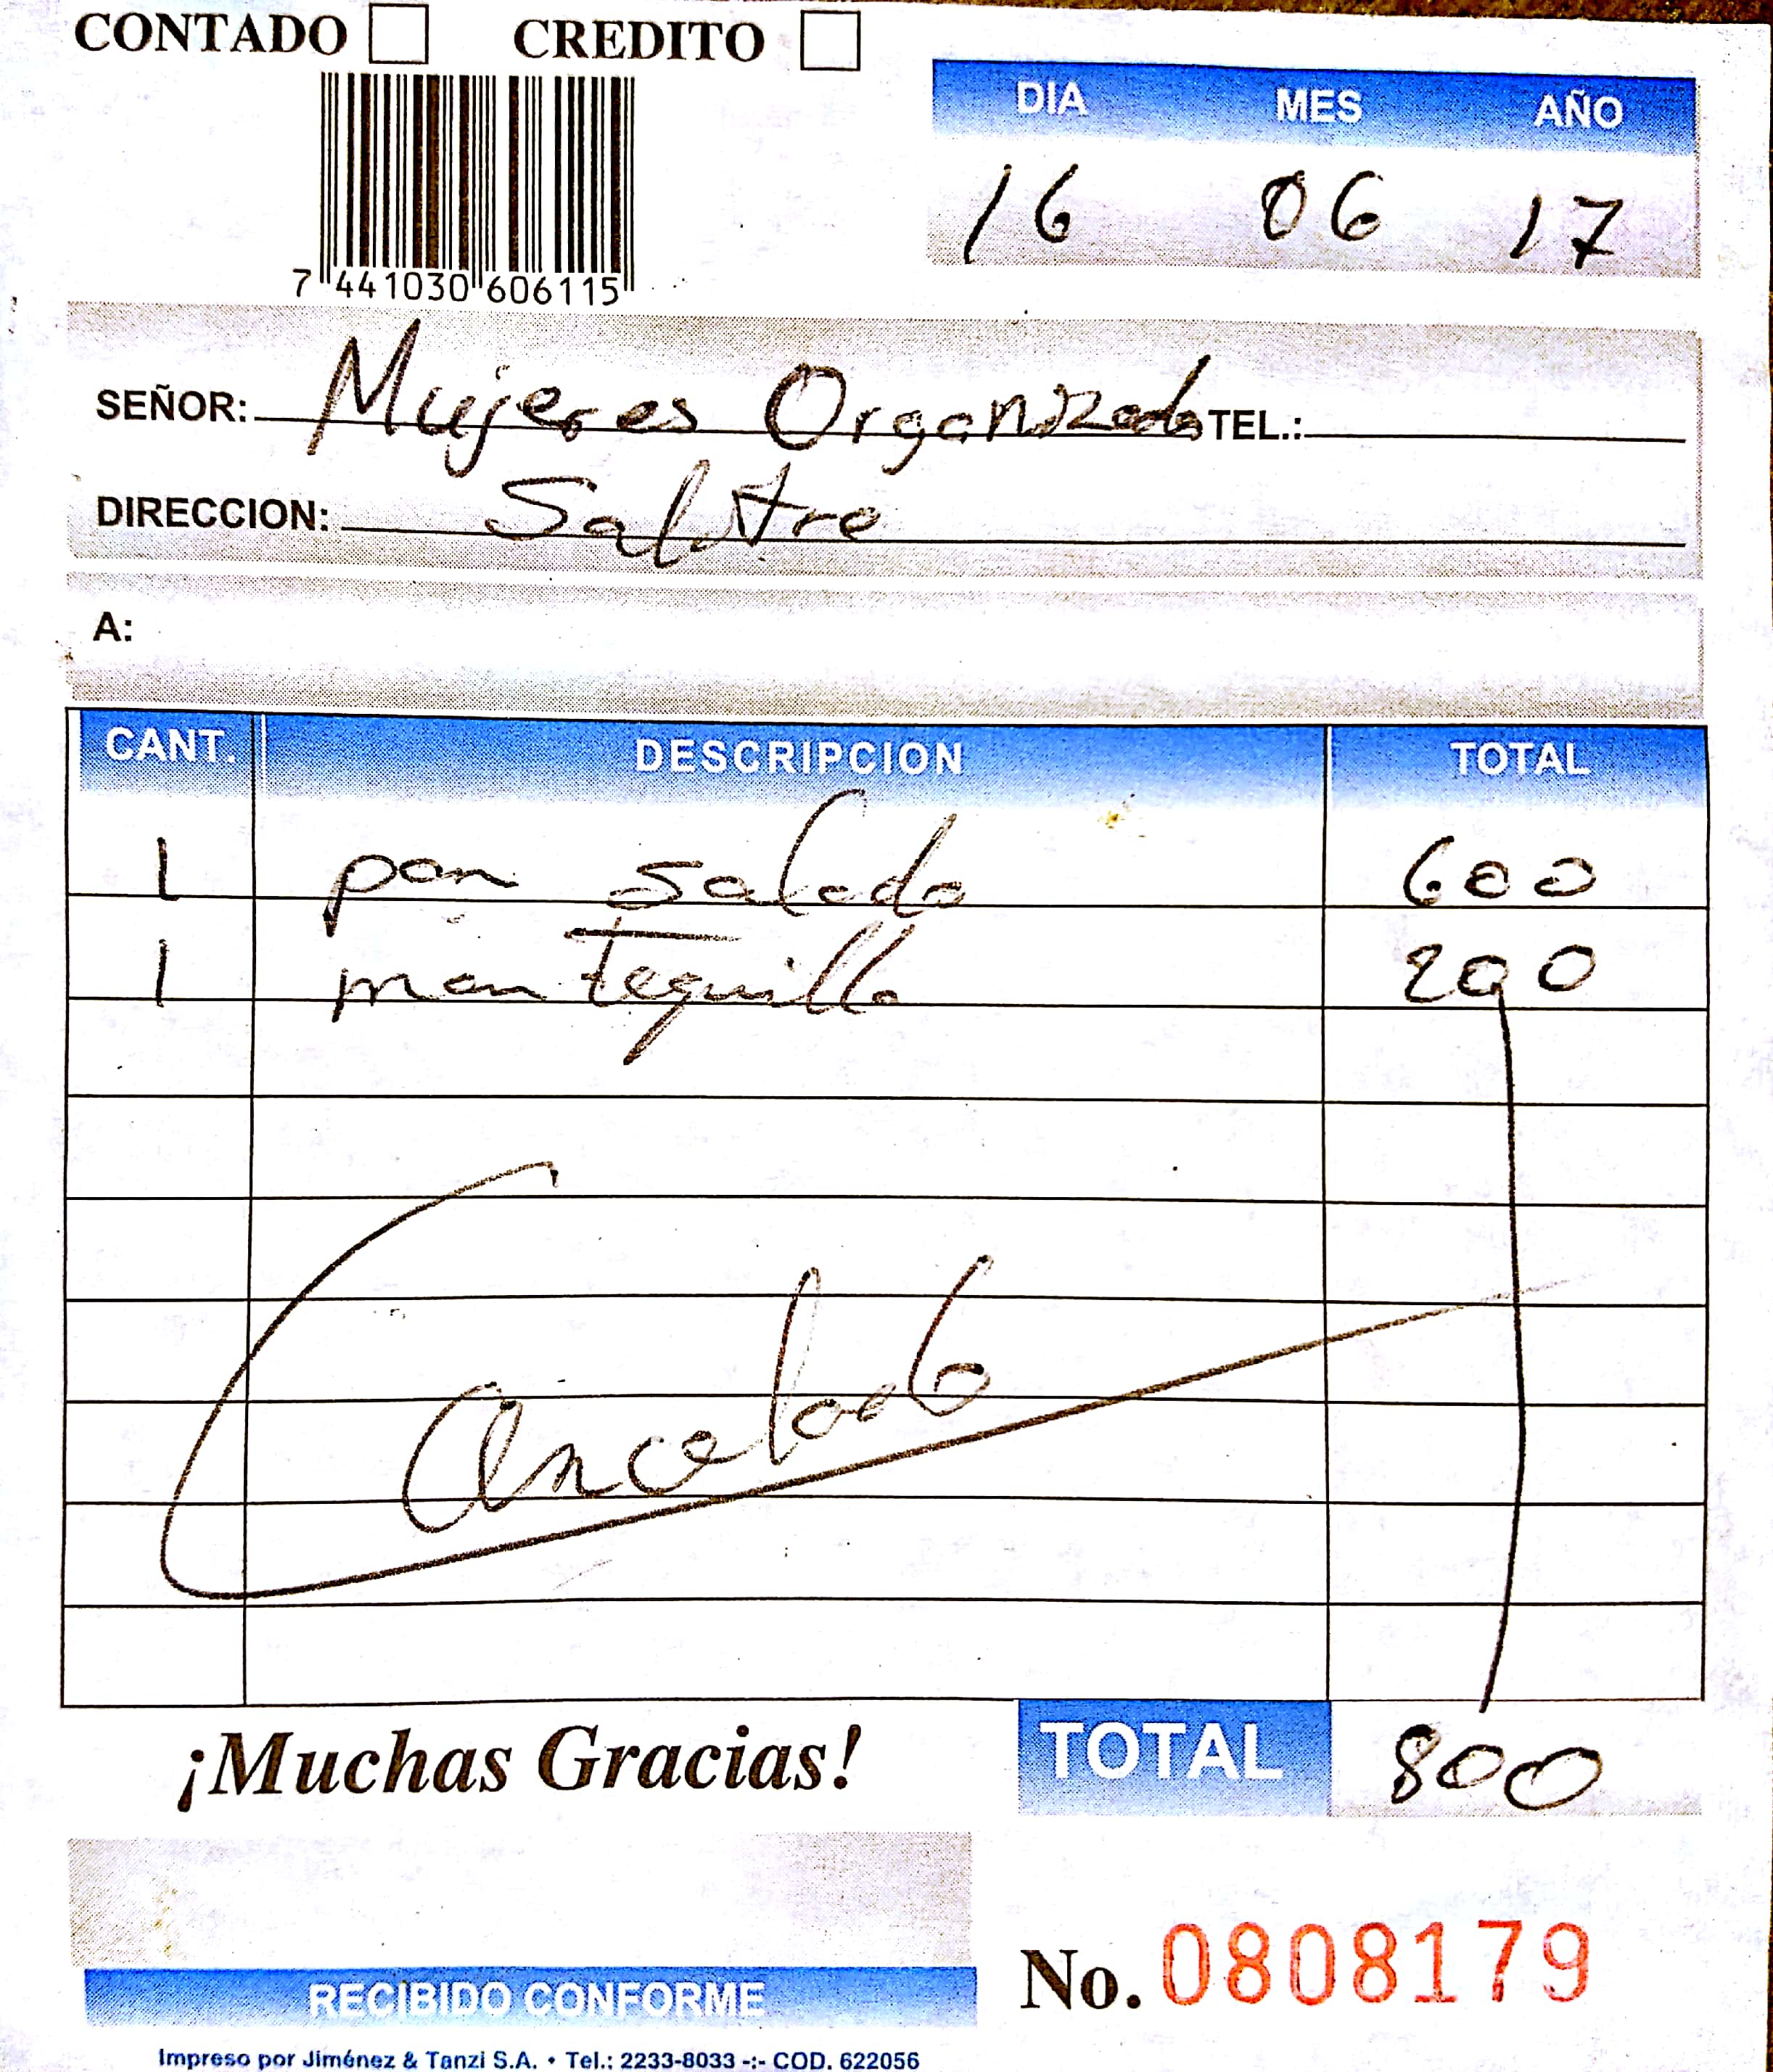 CONTADO CREDITO
DIA MES AÑO
16 06 17
7 441030 606115
SEÑOR: Mujeres Organizadas TEL.:
DIRECCION: Salitre
A:
CANT. DESCRIPCION TOTAL
1 pan salado 600
1 mantequilla 200
Cancelado
¡Muchas Gracias! TOTAL 800
No. 0808179
RECIBIDO CONFORME
Impreso por Jiménez & Tanzi S.A. • Tel.: 2233-8033 -:- COD. 622056